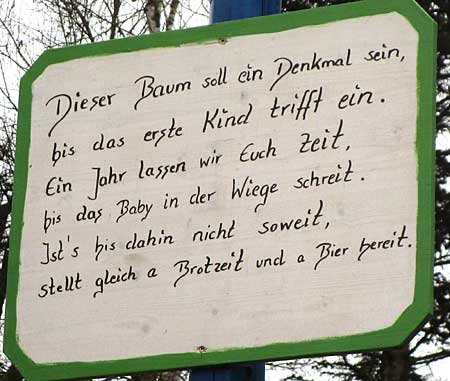 Dieser Baum soll ein Denkmal sein,
bis das erste Kind trifft ein.
Ein Jahr lassen wir Euch Zeit,
bis das Baby in der Wiege schreit.
Ist's bis dahin nicht soweit,
stellt gleich a Brotzeit und a Bier bereit.